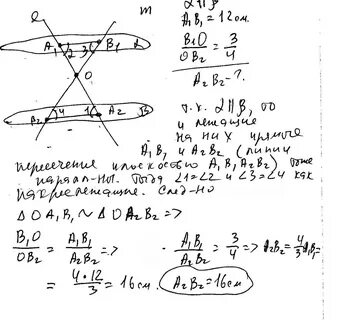 ℓ m α ∥ β
A₁B₁ = 12см.
A₁ 2 3 B₁ α
B₁O / OB₂ = 3/4
O
A₂B₂ - ?
B₂ 4 1 A₂ β
т.к. α∥β, то
и лежащие
на них прямые
A₁B₁ и A₂B₂ (линии
пересечения плоскостью A₁B₁A₂B₂) тоже
паралл-ны. Тогда ∠1=∠2 и ∠3=∠4 как
накрестлежащие. След-но
△OA₁B₁ ~ △OA₂B₂ =>
B₁O / OB₂ = A₁B₁ / A₂B₂ => A₁B₁ / A₂B₂ = 3/4 => A₂B₂ = 4/3 A₁B₁ =
= 4·12 / 3 = 16см. A₂B₂ = 16см